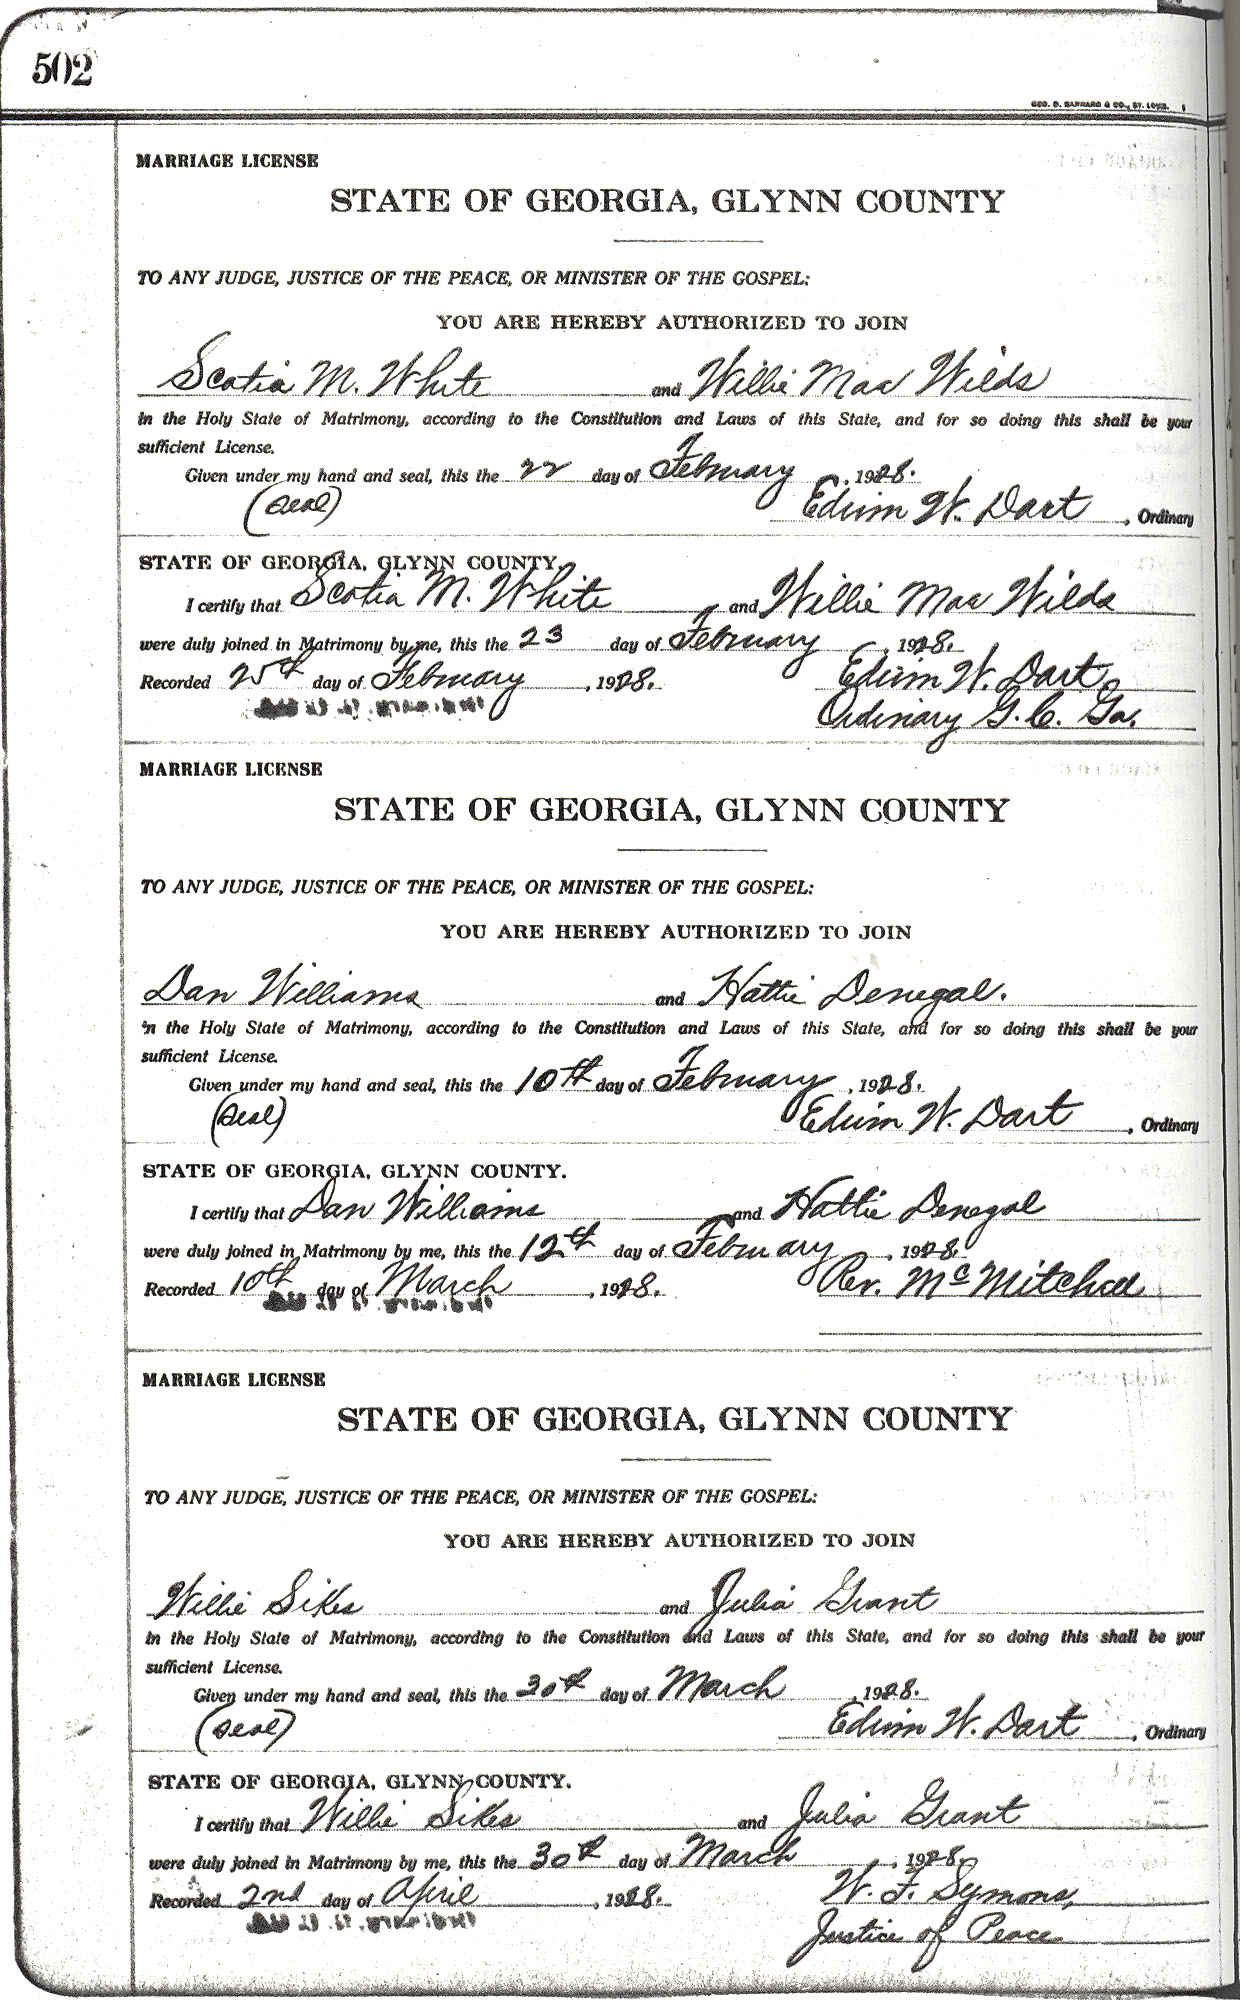 502
GEO. D. BARNARD & CO., ST. LOUIS.
MARRIAGE LICENSE
STATE OF GEORGIA, GLYNN COUNTY
TO ANY JUDGE, JUSTICE OF THE PEACE, OR MINISTER OF THE GOSPEL:
YOU ARE HEREBY AUTHORIZED TO JOIN
Scotia M. White and Willie Mae Wilds
in the Holy State of Matrimony, according to the Constitution and Laws of this State, and for so doing this shall be your
sufficient License.
Given under my hand and seal, this the 22 day of February, 1928.
(Seal) Edwin W. Dart, Ordinary
STATE OF GEORGIA, GLYNN COUNTY.
I certify that Scotia M. White and Willie Mae Wilds
were duly joined in Matrimony by me, this the 23 day of February, 1928.
Recorded 25th day of February, 1928. Edwin W. Dart,
Ordinary G. C. Ga.
MARRIAGE LICENSE
STATE OF GEORGIA, GLYNN COUNTY
TO ANY JUDGE, JUSTICE OF THE PEACE, OR MINISTER OF THE GOSPEL:
YOU ARE HEREBY AUTHORIZED TO JOIN
Dan Williams and Hattie Denegal.
in the Holy State of Matrimony, according to the Constitution and Laws of this State, and for so doing this shall be your
sufficient License.
Given under my hand and seal, this the 10th day of February, 1928.
(Seal) Edwin W. Dart, Ordinary
STATE OF GEORGIA, GLYNN COUNTY.
I certify that Dan Williams and Hattie Denegal
were duly joined in Matrimony by me, this the 12th day of February, 1928.
Recorded 10th day of March, 1928. Rev. McMitchel
MARRIAGE LICENSE
STATE OF GEORGIA, GLYNN COUNTY
TO ANY JUDGE, JUSTICE OF THE PEACE, OR MINISTER OF THE GOSPEL:
YOU ARE HEREBY AUTHORIZED TO JOIN
Willie Sikes and Julia Grant
in the Holy State of Matrimony, according to the Constitution and Laws of this State, and for so doing this shall be your
sufficient License.
Given under my hand and seal, this the 30th day of March, 1928.
(Seal) Edwin W. Dart, Ordinary
STATE OF GEORGIA, GLYNN COUNTY.
I certify that Willie Sikes and Julia Grant
were duly joined in Matrimony by me, this the 30th day of March, 1928.
Recorded 2nd day of April, 1928. W. F. Symons,
Justice of Peace